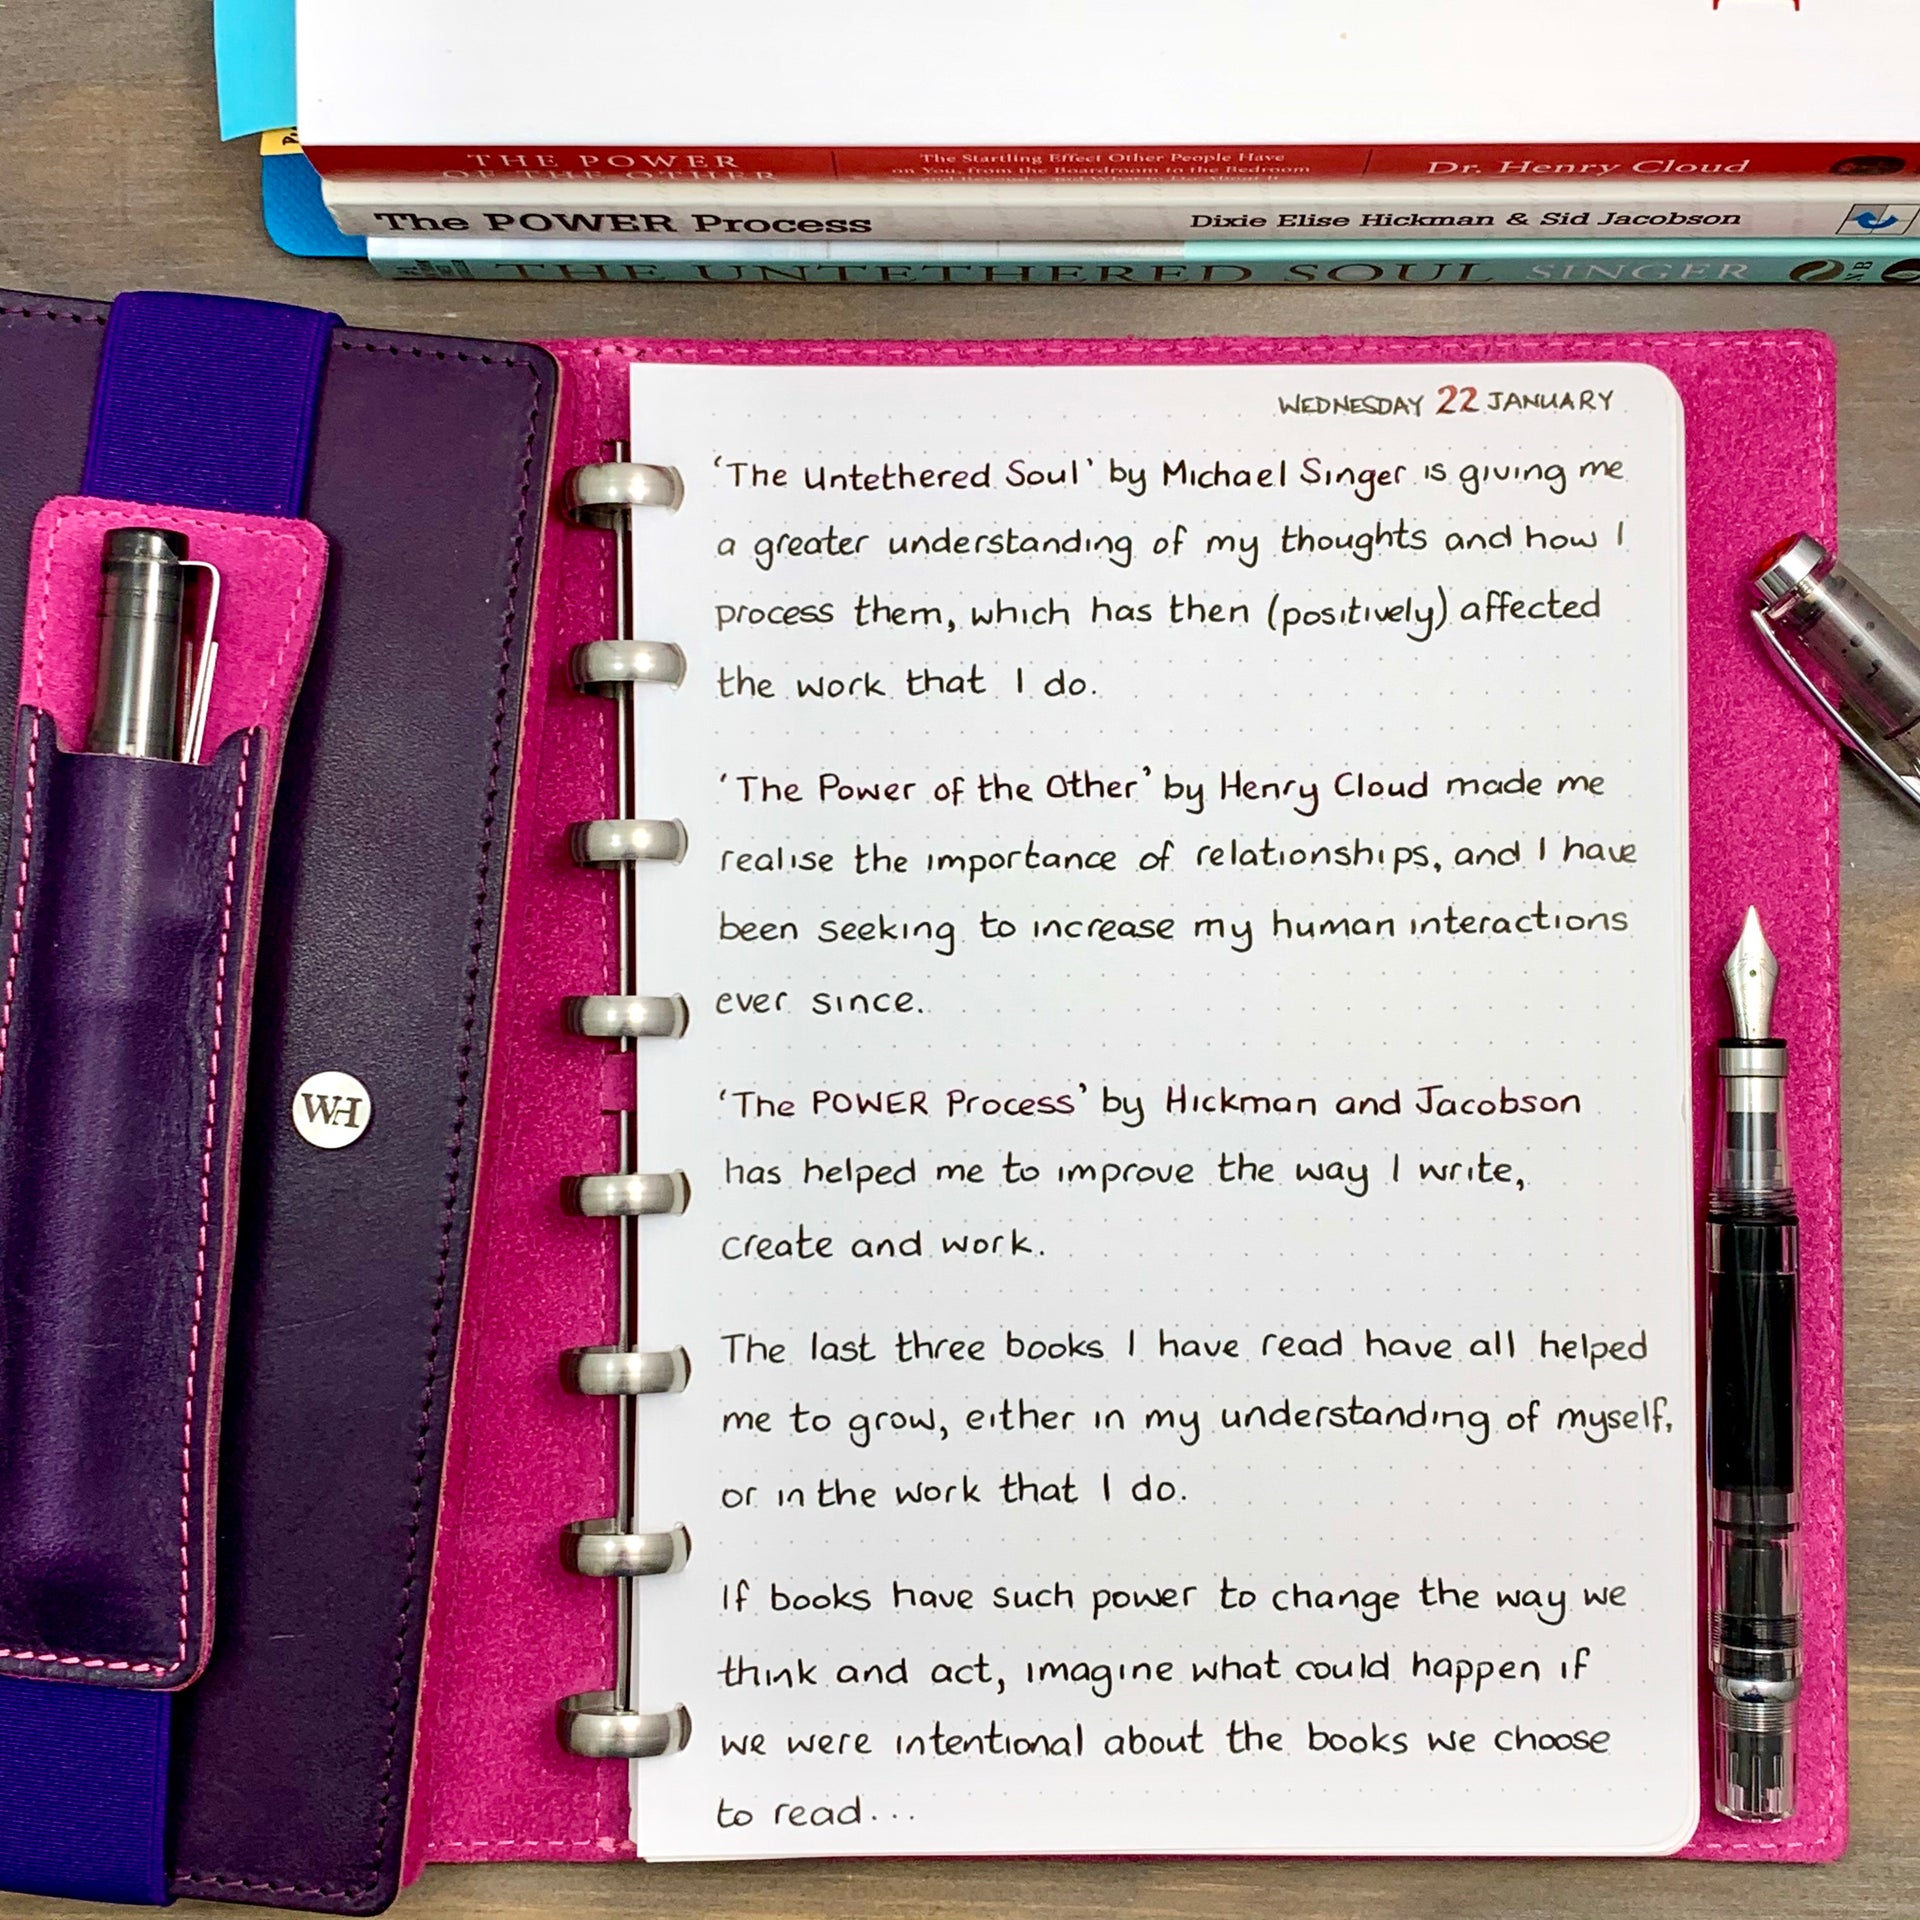 THE POWER
OF THE OTHER
The Startling Effect Other People Have
on You, from the Boardroom to the Bedroom
Dr. Henry Cloud
The POWER Process
Dixie Elise Hickman & Sid Jacobson
THE UNTETHERED SOUL
SINGER
WEDNESDAY 22 JANUARY
'The Untethered Soul' by Michael Singer is giving me
a greater understanding of my thoughts and how I
process them, which has then (positively) affected
the work that I do.
'The Power of the Other' by Henry Cloud made me
realise the importance of relationships, and I have
been seeking to increase my human interactions
ever since.
'The POWER Process' by Hickman and Jacobson
has helped me to improve the way I write,
create and work.
The last three books I have read have all helped
me to grow, either in my understanding of myself,
or in the work that I do.
If books have such power to change the way we
think and act, imagine what could happen if
we were intentional about the books we choose
to read...
WH